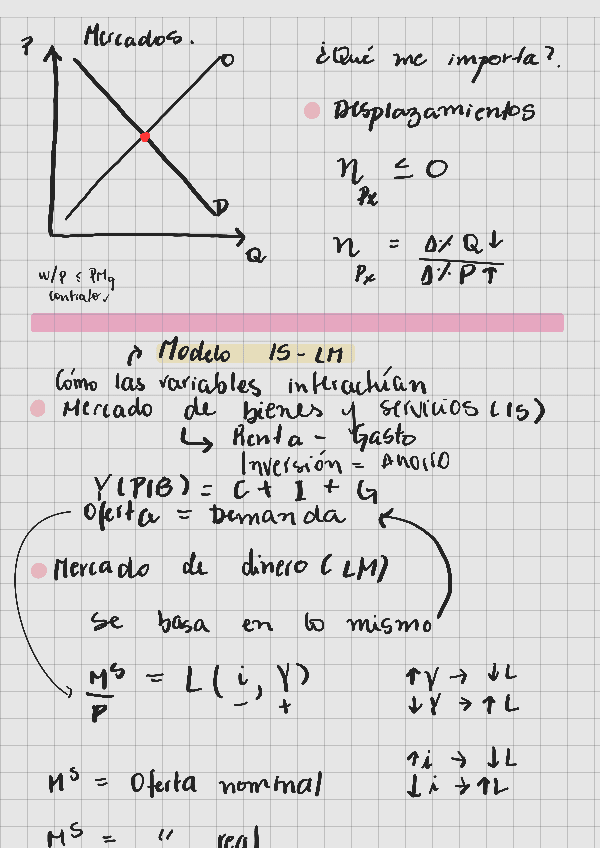 Mercados.
P
O
D
Q
w/p ≤ PMg
contrato ✓
¿Qué me importa?.
Desplazamientos
η Px ≤ 0
η Px = Δ% Q ↓ / Δ% P ↑
Modelo IS-LM
Cómo las variables interactúan
Mercado de bienes y servicios (IS)
↳ Renta - Gasto
Inversión = Ahorro
Y(PIB) = C + I + G
Oferta = Demanda
Mercado de dinero (LM)
se basa en lo mismo
M^S / P = L ( i, Y )
- +
↑Y → ↓L
↓Y → ↑L
↑i → ↓L
↓i → ↑L
M^S = Oferta nominal
M^S = " real